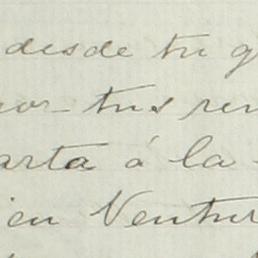 desde tu g
por tus ren
arta á la
ien Ventur